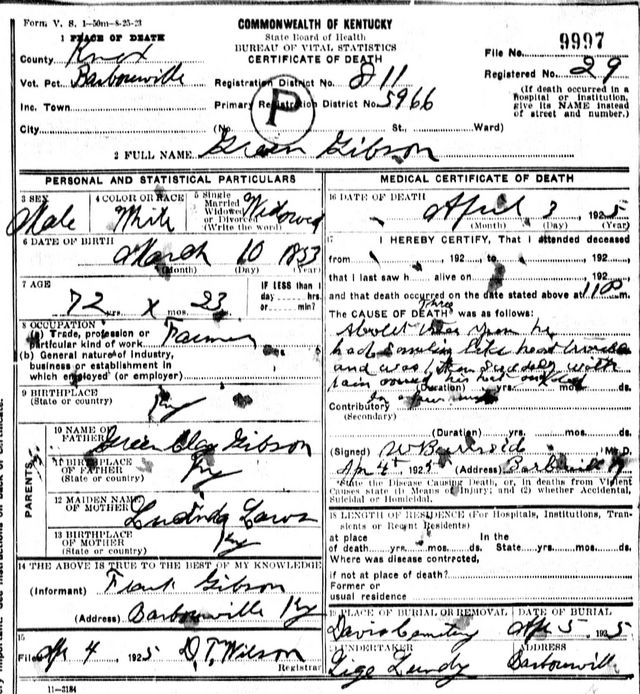 Form V. S. 1-50m-8-25-23
1 PLACE OF DEATH
County Knox
Vot. Pct. Barbourville
Inc. Town
City
COMMONWEALTH OF KENTUCKY
State Board of Health
BUREAU OF VITAL STATISTICS
CERTIFICATE OF DEATH
Registration District No. 811
Primary Registration District No. 5966
P
(No. St., Ward)
File No. 9997
Registered No. 29
(If death occurred in a
hospital or institution,
give its NAME instead
of street and number.)
2 FULL NAME Green Gibson
PERSONAL AND STATISTICAL PARTICULARS
3 SEX
Male
4 COLOR OR RACE
White
5 Single
Married
Widowed
or Divorced
(Write the word)
Widowed
6 DATE OF BIRTH
March 10 1853
(Month) (Day) (Year)
7 AGE
72 yrs. X mos. 23
IF LESS than 1
day hrs.
or min?
8 OCCUPATION
(a) Trade, profession or
particular kind of work Farmer
(b) General nature of industry,
business or establishment in
which employed (or employer)
9 BIRTHPLACE
(State or country) Ky
PARENTS
10 NAME OF
FATHER Green Clay Gibson
11 BIRTHPLACE
OF FATHER
(State or country) Ky
12 MAIDEN NAME
OF MOTHER
13 BIRTHPLACE
OF MOTHER
(State or country) Ky
14 THE ABOVE IS TRUE TO THE BEST OF MY KNOWLEDGE
(Informant) Frank Gibson
(Address) Barbourville Ky
15
Filed Apr 4 1925 D. T. Wilson
Registrar
11-3184
MEDICAL CERTIFICATE OF DEATH
16 DATE OF DEATH
April 3, 1925
(Month) (Day) (Year)
17 I HEREBY CERTIFY, That I attended deceased
from , 192 , to , 192
that I last saw h alive on , 192
and that death occurred on the date stated above at 1100 m.
The CAUSE OF DEATH was as follows:
About three
had heart trouble
and was with
pain his
(Duration) yrs. mos. ds.
Contributory
(Secondary)
(Duration) yrs. mos. ds.
(Signed) M. D.
Apr 4th 1925 (Address) Barbourville Ky
State the Disease Causing Death, or, in deaths from Violent
Causes state (1) Means of Injury; and (2) whether Accidental,
Suicidal or Homicidal.
18 LENGTH OF RESIDENCE (For Hospitals, Institutions, Tran-
sients or Recent Residents)
at place In the
of death yrs. mos. ds. State yrs. mos. ds.
Where was disease contracted,
if not at place of death?
Former or
usual residence
19 PLACE OF BURIAL OR REMOVAL
Davis Cemetery
DATE OF BURIAL
Apr 5 1925
20 UNDERTAKER
ADDRESS
Barbourville